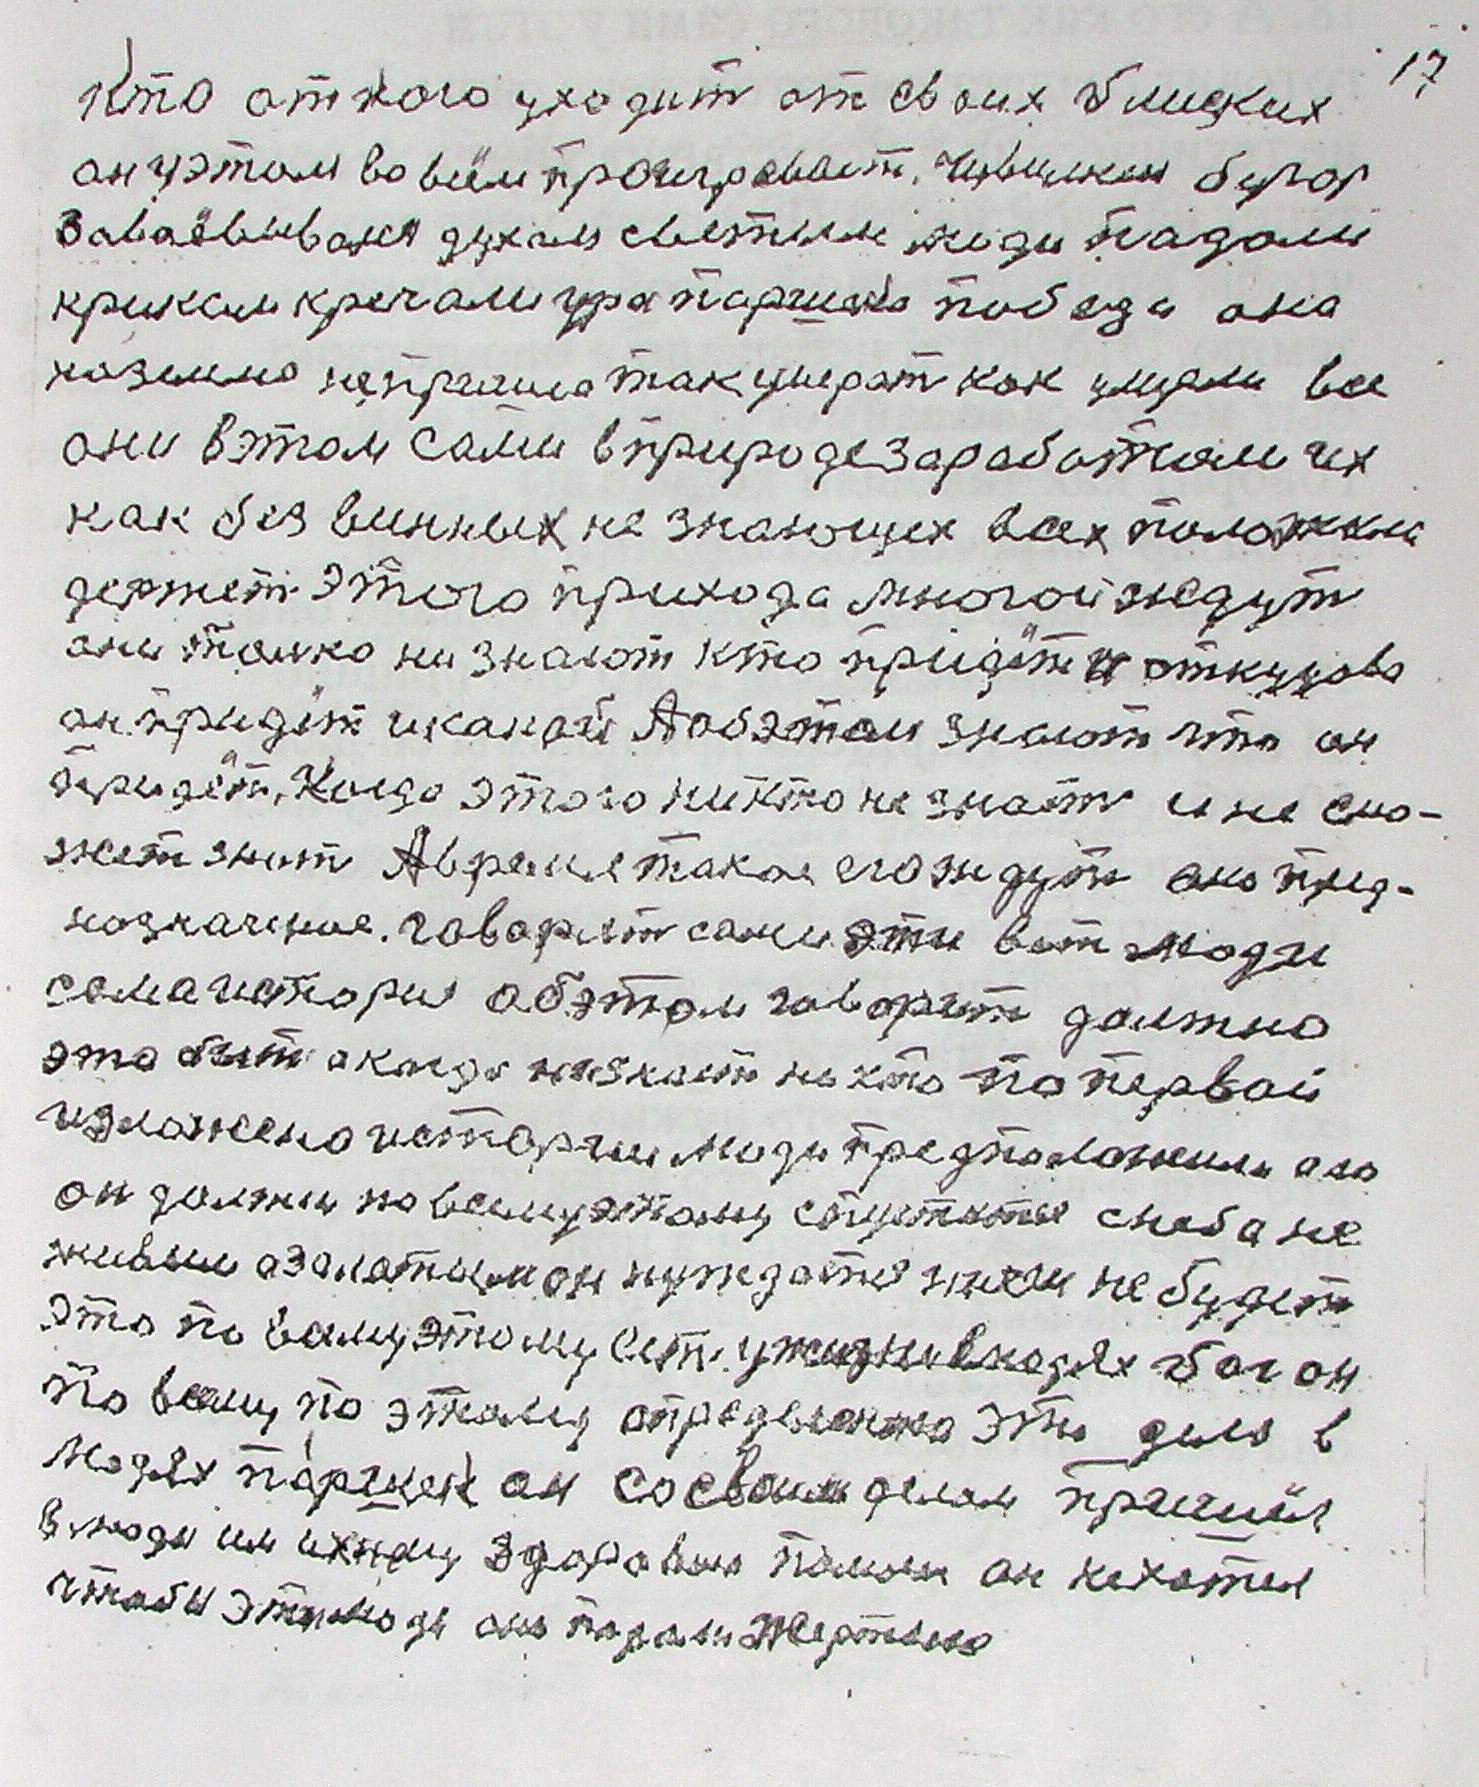 17
Кто от кого уходит от своих блиских
он у этом во всём проигровает. Чувилкин бугор
завоёвывался духом светым люди падали
криком кречали ура паршека победа она
на землю не пришла так умерат как умерали все
они в этом сами в природе заработали их
как без винных не знающих всех положила
держет этого прихода многои ждут
они толко ни знают кто придёт и откудова
он придёт и какой А об этом знают что он
придёт. Когда этого никто не знат и не смо-
жет знат А время такое его ждут оно пред-
назначеное. говорят сами эти вот люди
сама история об этом говорит должно
это быт а когда не знает никто по первой
изложено истории люди предположили его
он должен по всему этому спуститься с неба не
живым а золотым он нуждатся ничем не будет
это по всему этому ест у жизни в людях бог он
по всему по этому определено это дело в
людях паршек он со своим делом пришёл
в люди им ихнему здоровью помочь он не хотел
чтобы эти люди они падали жертвою